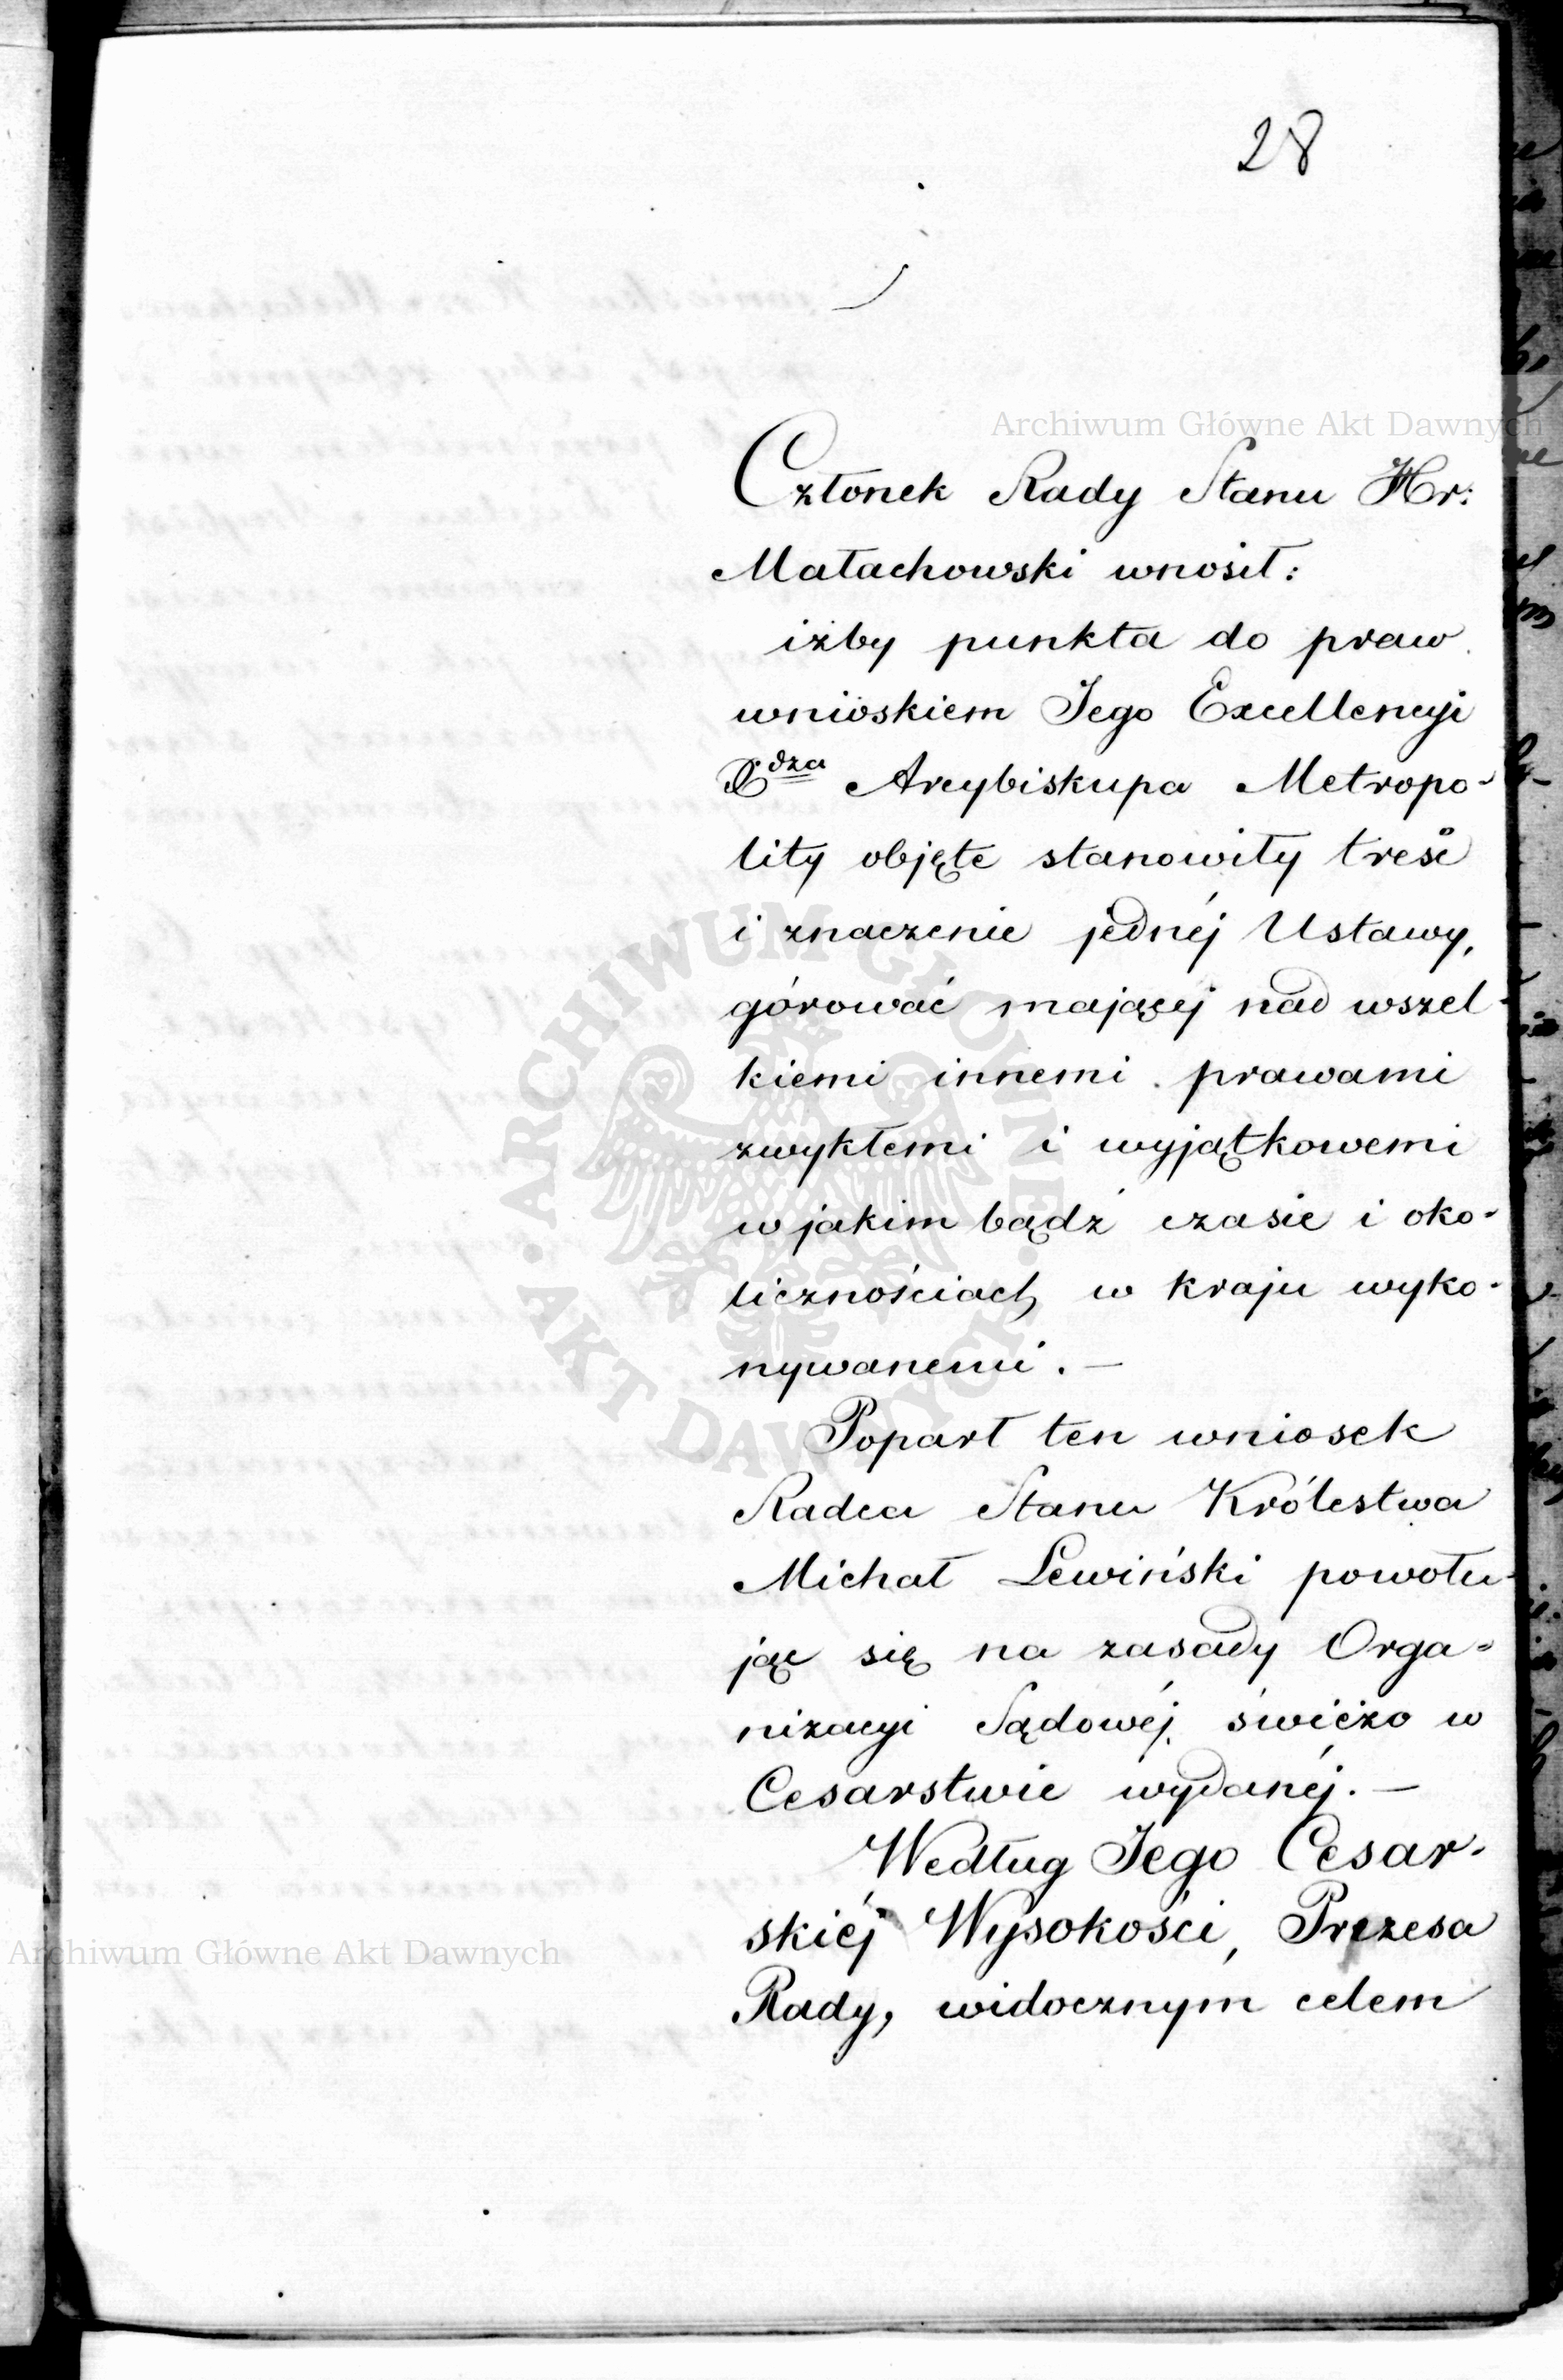 28
Archiwum Główne Akt Dawnych
Członek Rady Stanu Hr:
Małachowski wnosił:
iżby punkta do praw
wnioskiem Jego Excellencyi
Xdza Arcybiskupa Metropo-
lity objęte stanowiły treść
i znaczenie jednéj Ustawy,
górować mającéj nad wszel-
kiemi innemi prawami
zwykłemi i wyjątkowemi
w jakim bądź czasie i oko-
licznościach w kraju wyko-
nywanemi. —
Poparł ten wniosek
Radca Stanu Królestwa
Michał Lewiński powołu-
jąc się na zasady Orga-
nizacyi Sądowéj, świéżo w
Cesarstwie wydanéj. —
Według Jego Cesar-
skiéj Wysokości, Prezesa
Rady, widocznym celem
ARCHIWUM GŁÓWNE AKT DAWNYCH
Archiwum Główne Akt Dawnych